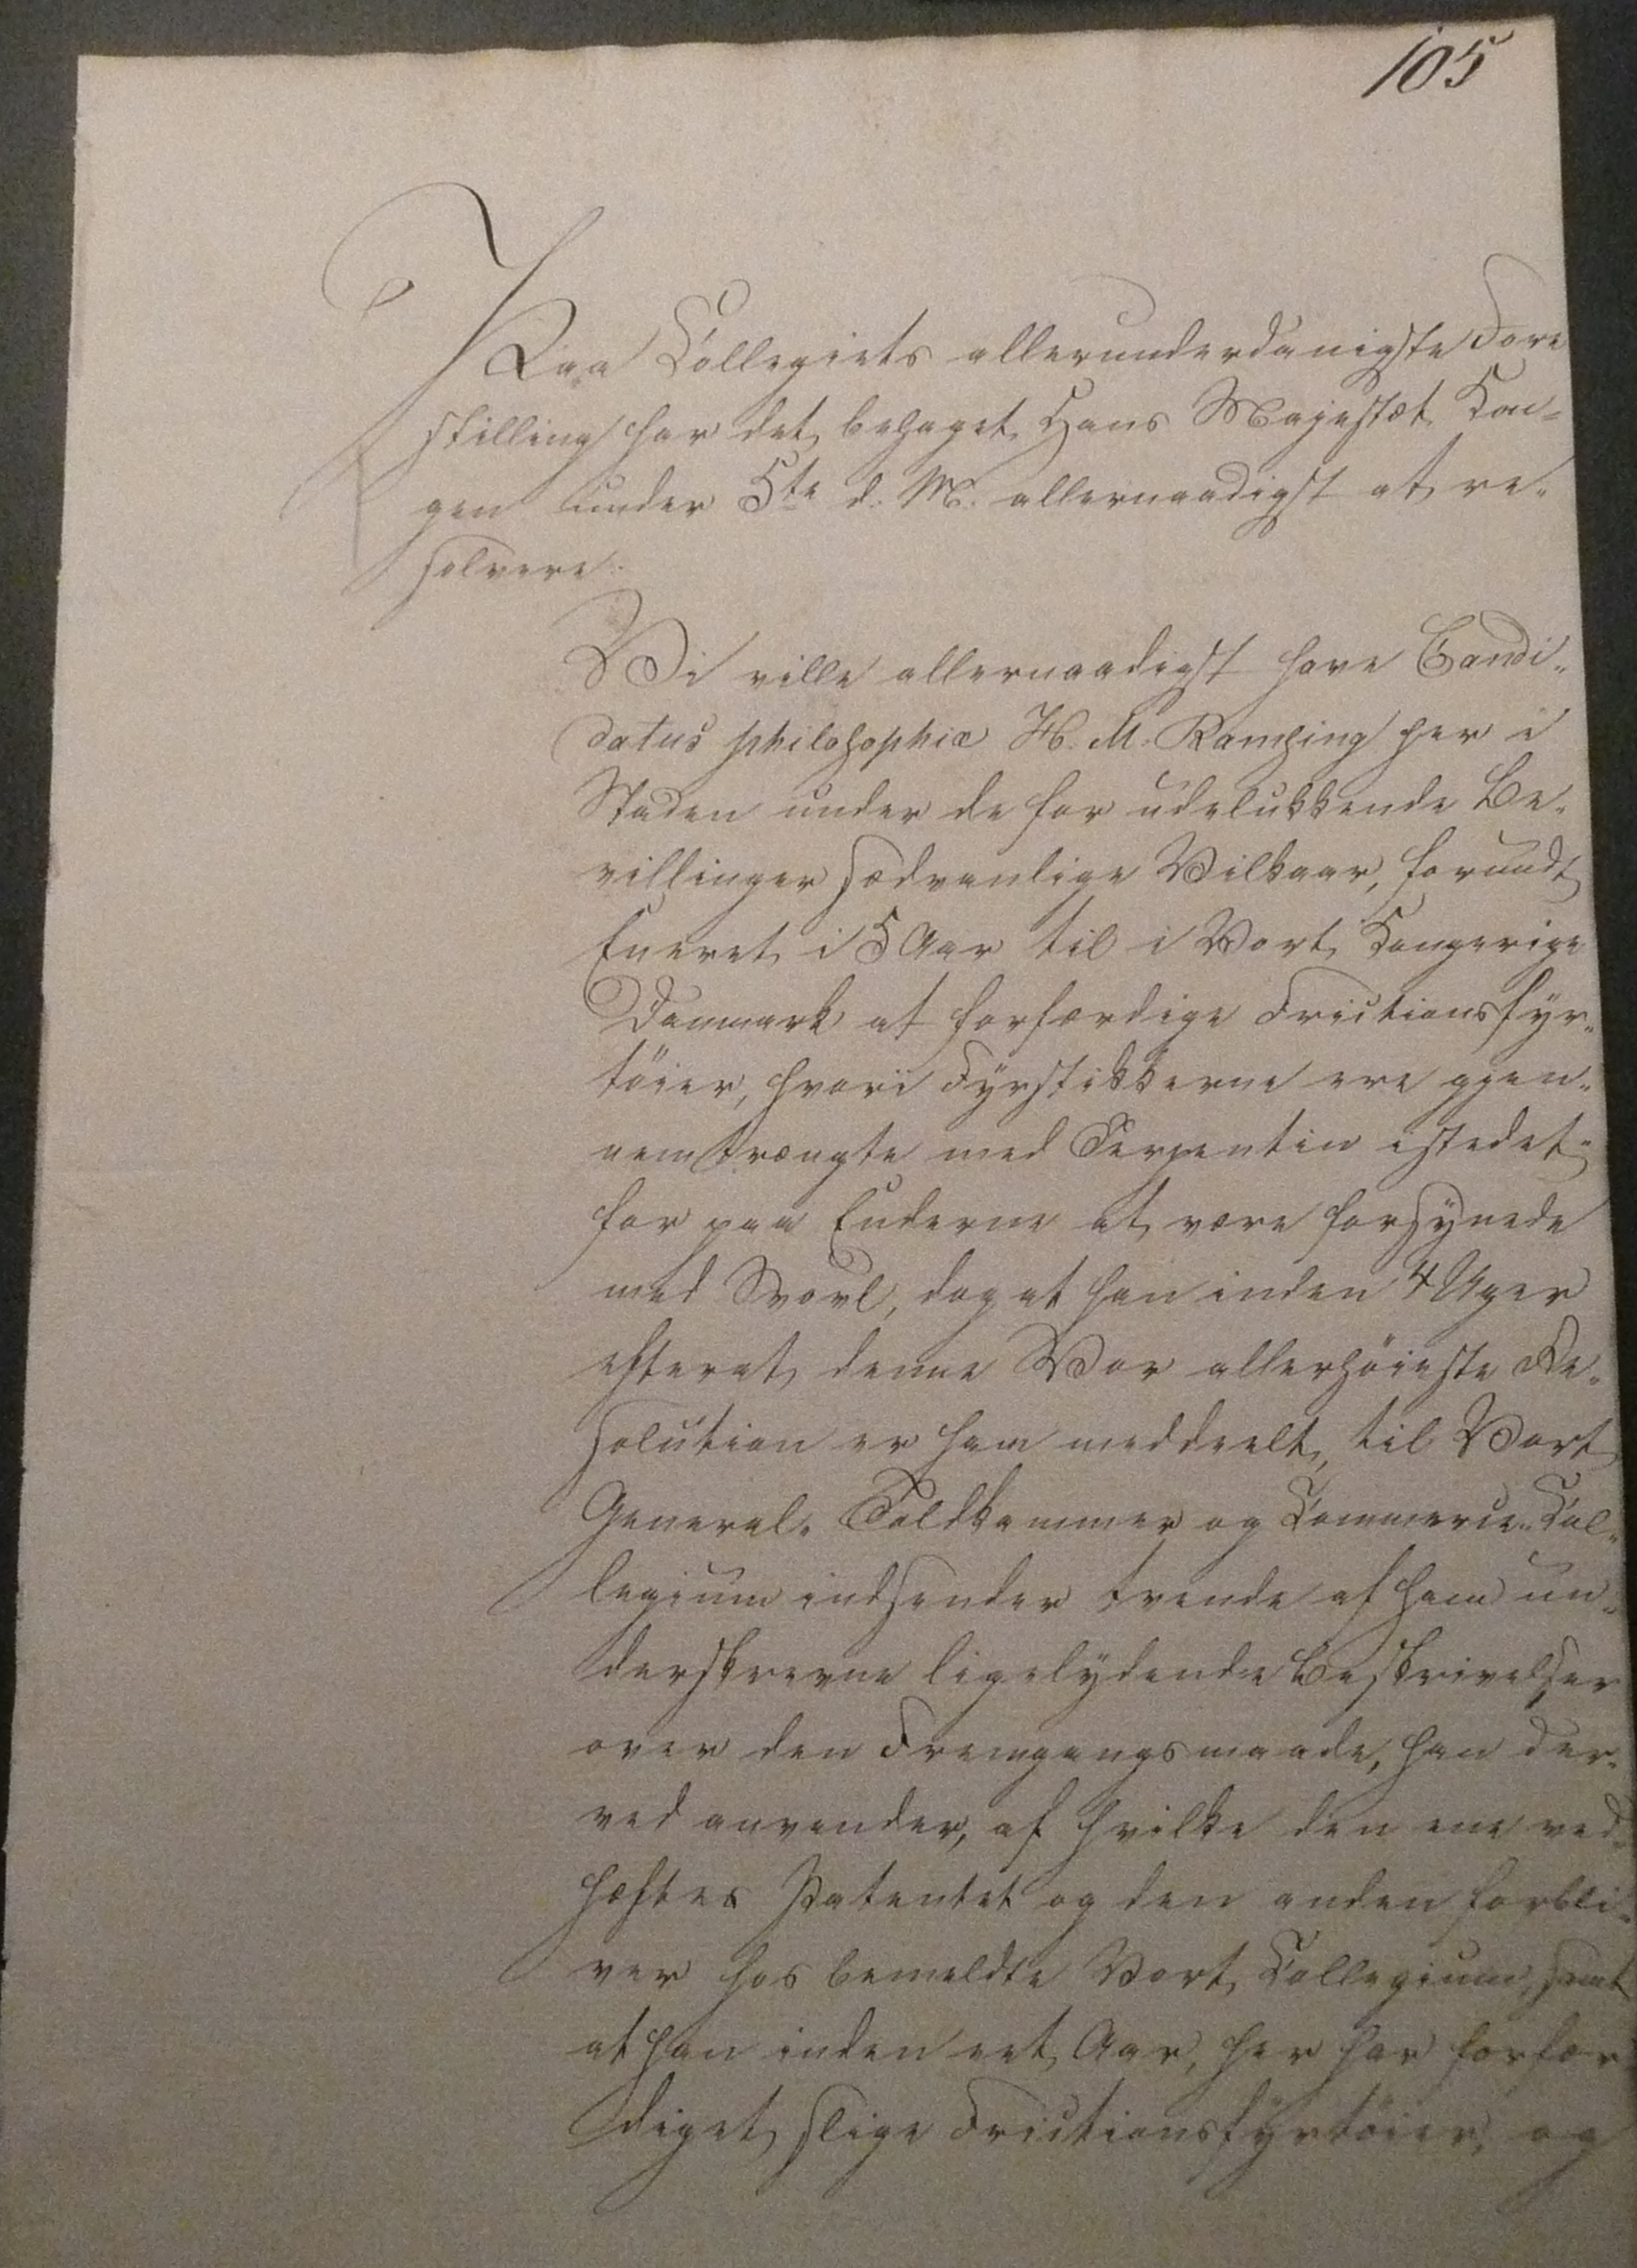 105
Paa Collegiets allerunderdanigste Fore
stilling har det behaget Hans Majestæt Kon-
gen under 5te d. M. allernaadigst at re-
solvere:
Vi ville allernaadigst have Candi-
datus philosophiæ H. M. Ramsing her i
Staden under de for udelukkende Be-
villinger sædvanlige Vilkaar, forundt
Eneret i 5 Aar til i Vort Kongerige
Danmark at forfærdige Frictionsfyr-
tøier, hvori Fyrstikkerne ere gjen-
nemtrængte med Terpentin istedet-
for paa Enderne at være forsynede
med Svovl, dog at han inden 4 Uger
efterat denne Vor allerhøieste Re-
solution er ham meddeelt, til Vort
General-Toldkammer og Commerce-Col-
legium indsender trende af ham un-
derskrevne ligelydende Beskrivelser
over den Fremgangsmaade, han der-
ved anvender, af hvilke den ene ved-
hæftes Patentet og den anden forbli-
ver hos bemeldte Vort Collegium, samt
at han inden eet Aar, her har forfær
diget slige Frictionsfyrtøier, og